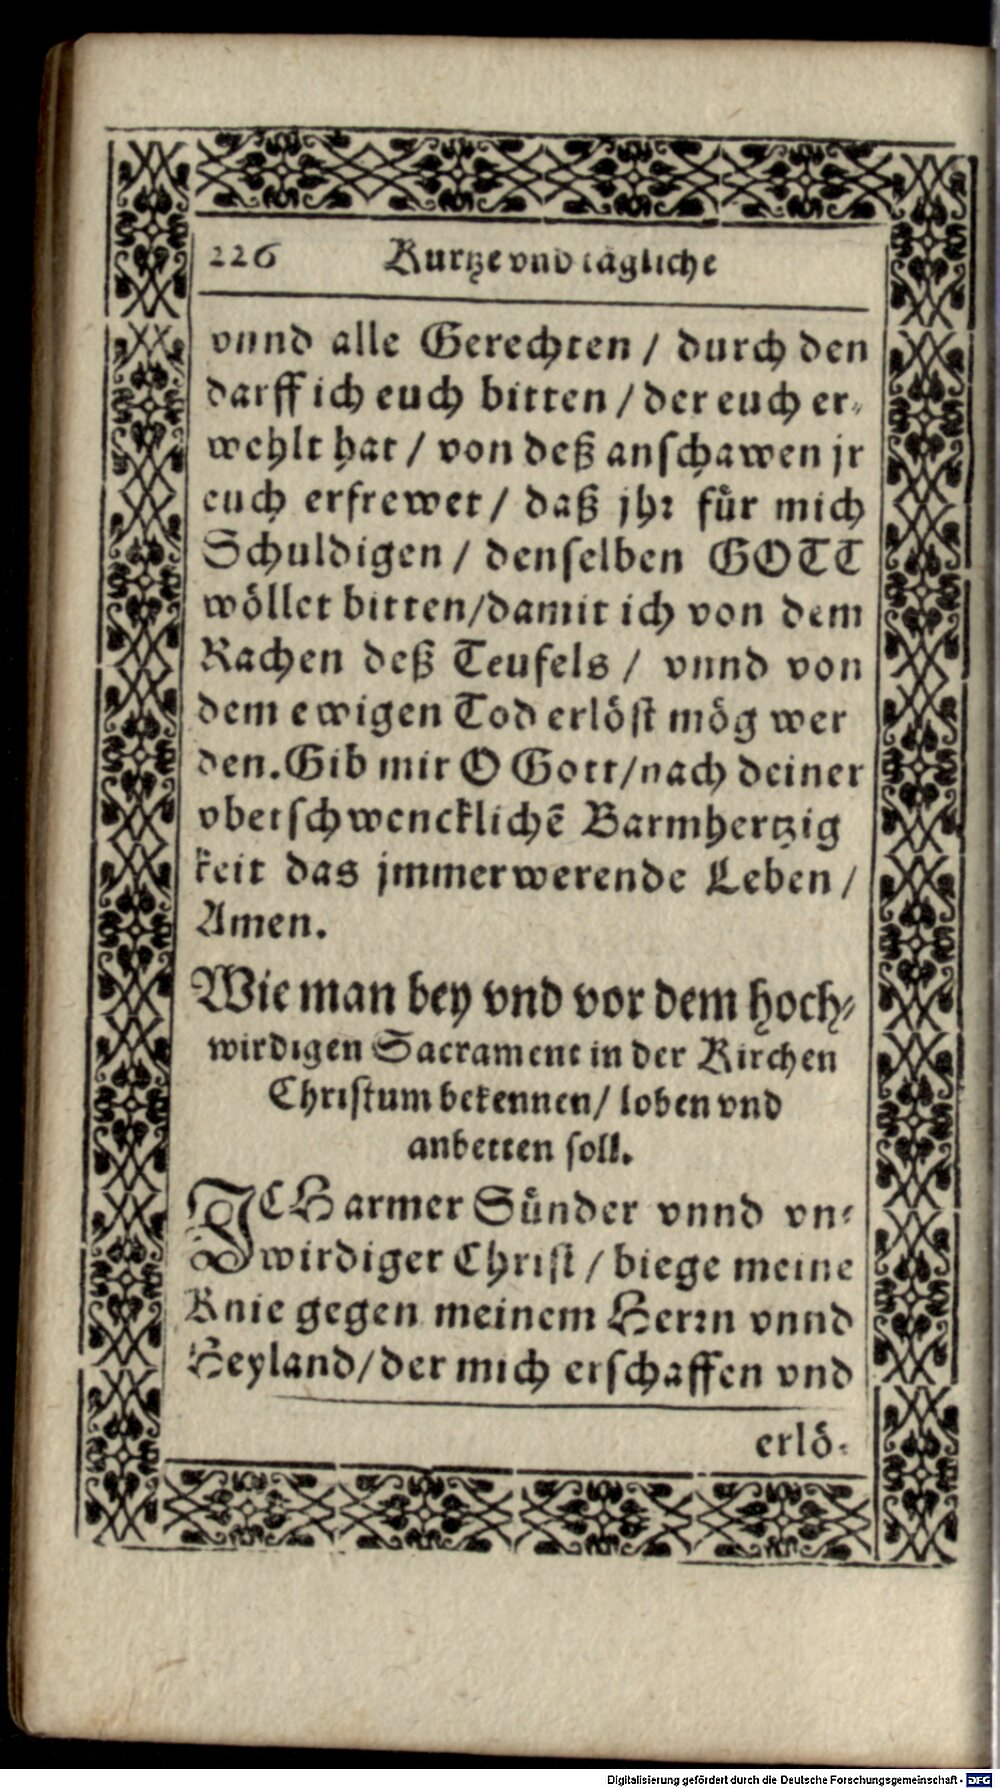 226 Kurtze vnd tägliche
vnnd alle Gerechten / durch den
darff ich euch bitten / der euch er-
wehlt hat / von deß anschawen jr
euch erfrewet / daß jhr für mich
Schuldigen / denselben GOTT
wöllet bitten/damit ich von dem
Rachen deß Teufels / vnnd von
dem ewigen Tod erlöst mög wer
den. Gib mir O Gott/nach deiner
vberschwencklichẽ Barmhertzig
keit das jmmerwerende Leben /
Amen.
Wie man bey vnd vor dem hoch-
wirdigen Sacrament in der Kirchen
Christum bekennen/ loben vnd
anbetten soll.
ICH armer Sünder vnnd vn-
wirdiger Christ / biege meine
Knie gegen meinem Herrn vnnd
Heyland/der mich erschaffen vnd
erlö-
Digitalisierung gefördert durch die Deutsche Forschungsgemeinschaft - DFG